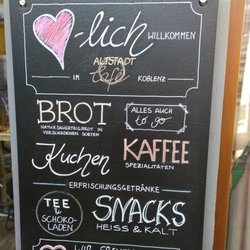 -lich WILLKOMMEN
ALTSTADT
IM Café KOBLENZ
BROT
NATURSAUERTEIGBROT IN
VERSCHIEDENEN SORTEN
ALLES AUCH
to go
Kuchen
KAFFEE
SPEZIALITÄTEN
ERFRISCHUNGSGETRÄNKE
TEE
&
SCHOKO-
LADEN
SNACKS
HEISS & KALT
WIR